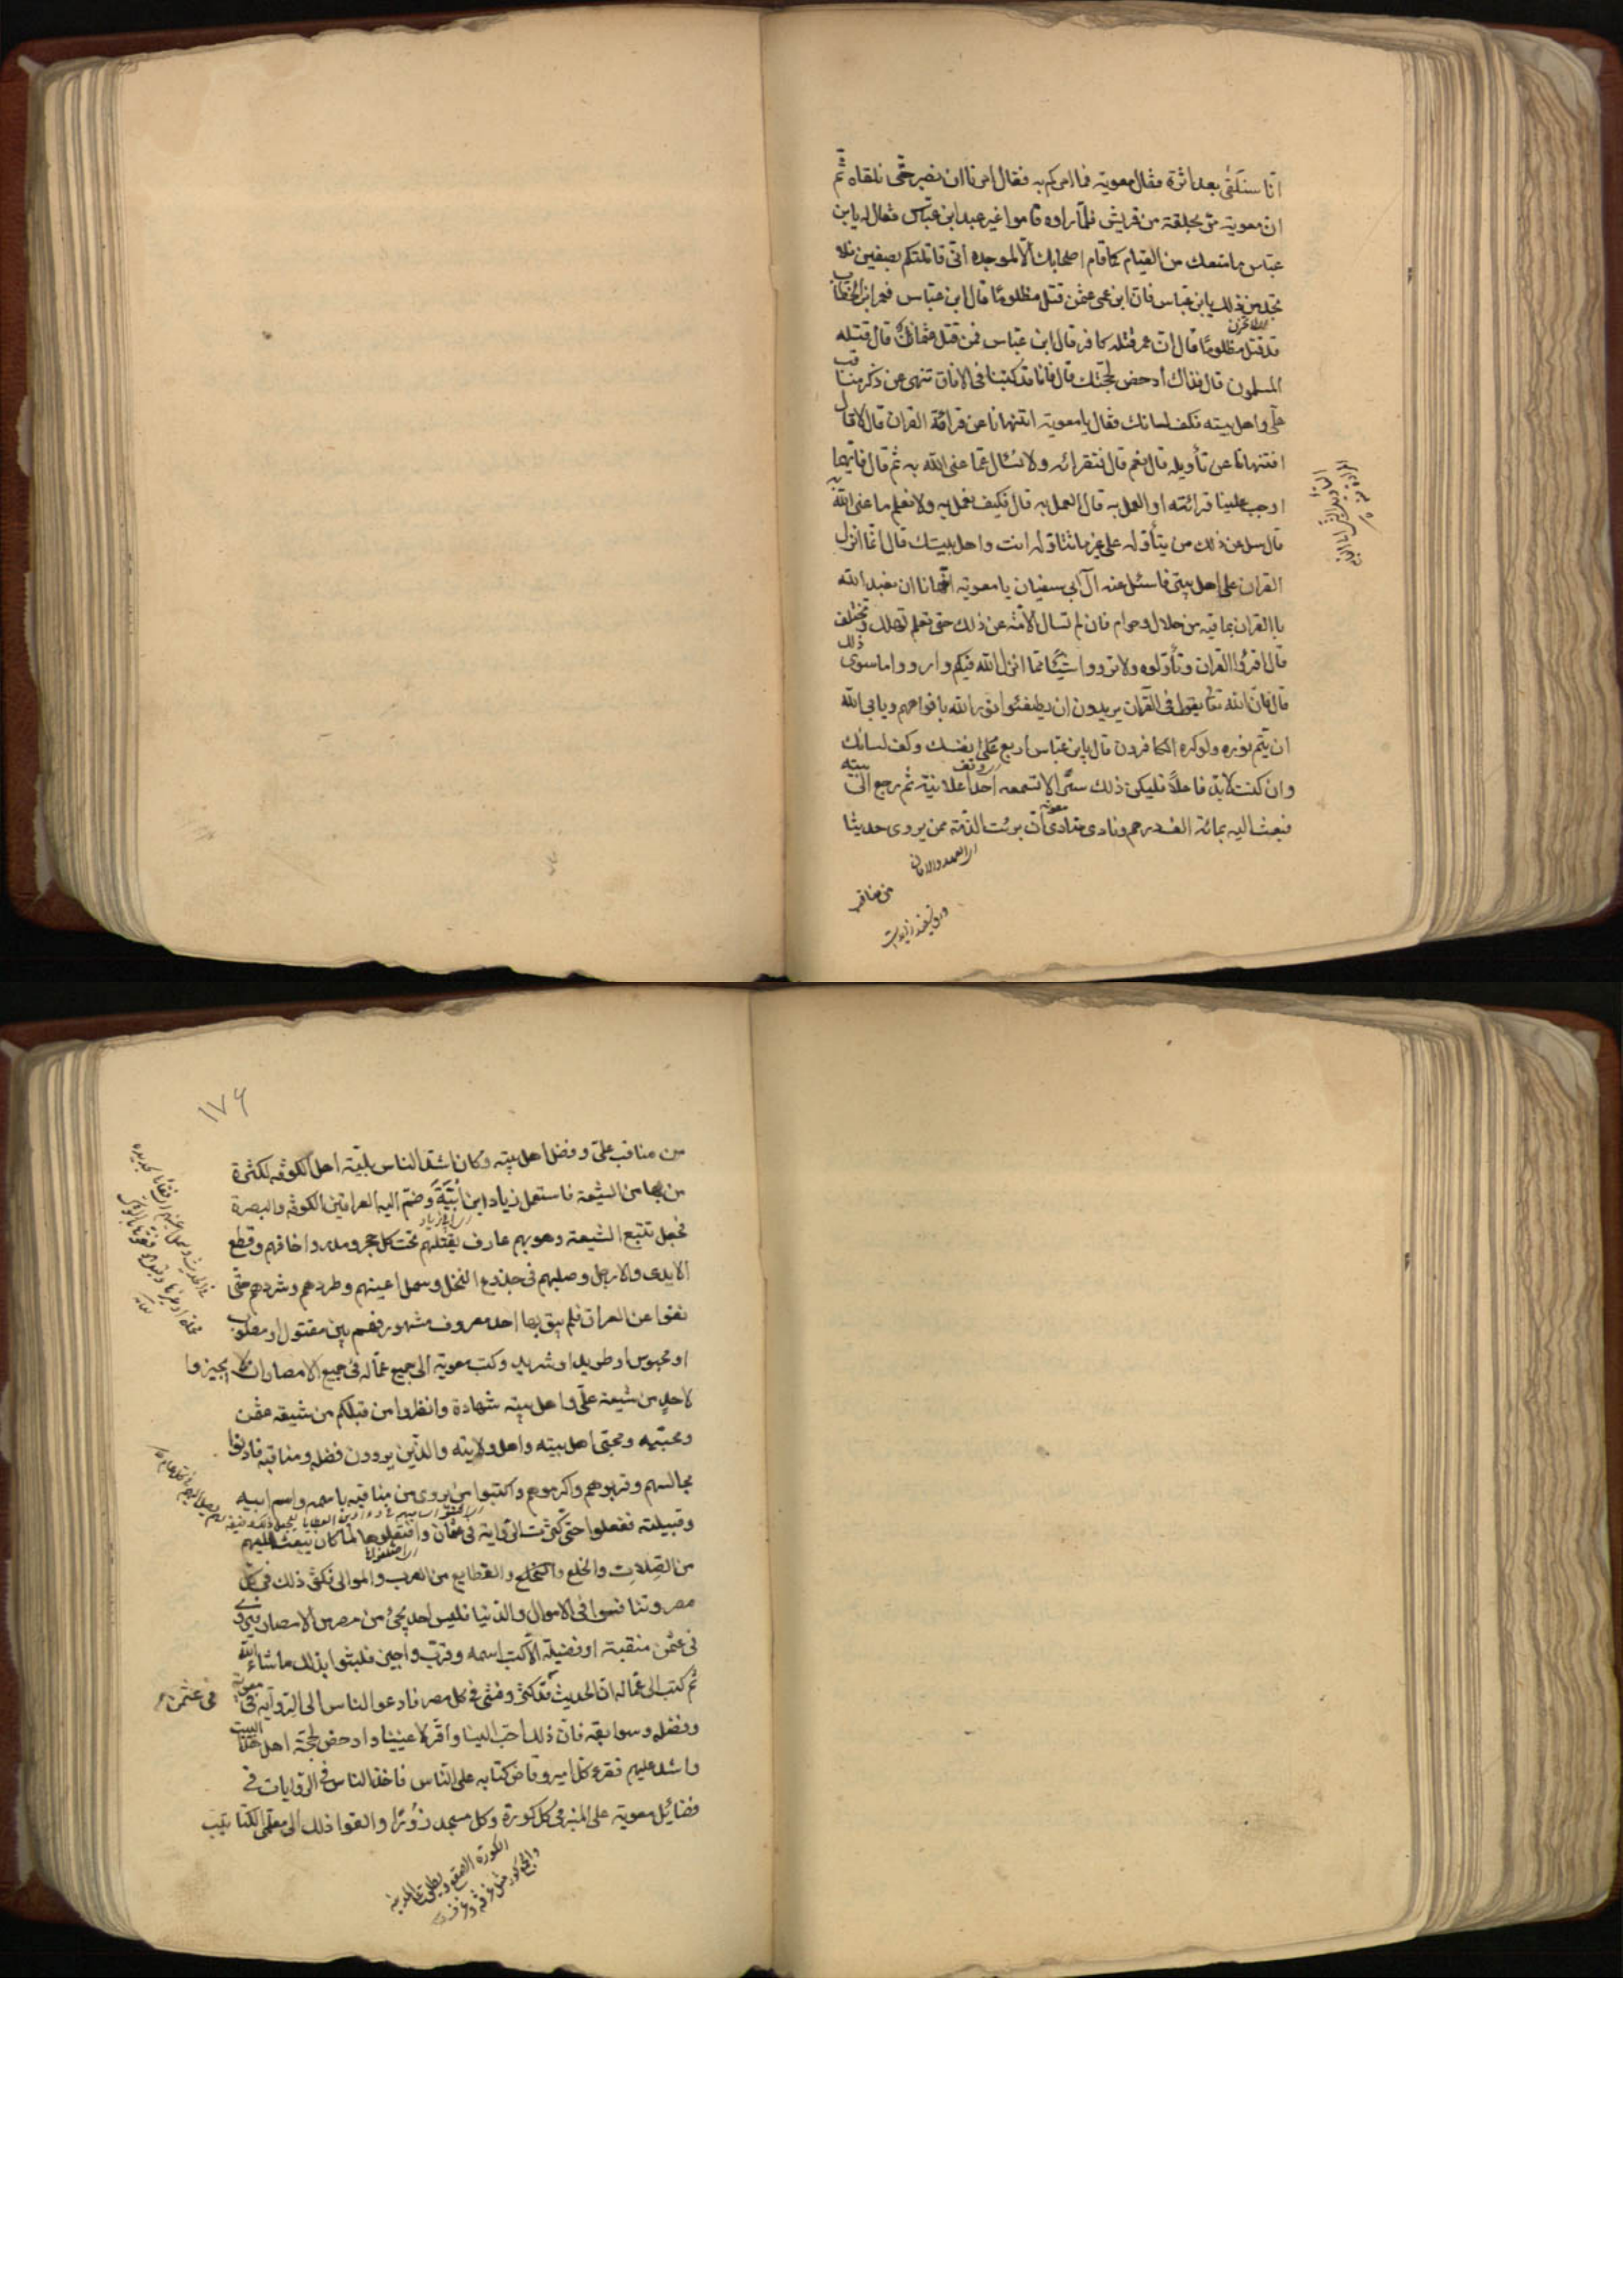 انّا سنلقى بعده اثرة فقال معوية فما امركم به فقال امرنا ان نصبر حتّى نلقاه ثم
ان معوية مرّ بحلقة من قريش فلمّا راوه قاموا غير عبد ابن عبّاس فقال له يا بن
عبّاس ما منعك من القيام كما قام اصحابك الّا لموجدة انّى قاتلتكم بصفين فلا
تجد من ذلك يا بن عباس فان ابن عمى عثمن قتل مظلومًا قال ابن عبّاس فعمر ابن الخطاب
قد قتل مظلومًا قال انّ عمر قتله كافر قال ابن عبّاس فمن قتل عثمان قال قتله
المسلمون قال فذاك ادحض لحجتك قال فانا قد كتبنا فى الافاق ننهى عن ذكر مناقب
علىّ واهل بيته فكف لسانك فقال يا معوية اتنهانا عن قرائة القران قال لا قال
افتنهانا عن تأويله قال نعم قال فنقرائه ولا نسال عمّا عنى الله به ثم قال فايّهما
اوجب علينا قرائته او العمل به قال العمل به قال فكيف نعمل به ولا نعلم ما عنى الله
قال سل عن ذلك من يتأوله على غير ما تتاوله انت واهل بيتك قال انّما انزل
القران على اهل بيتى فاسئل عنه آل ابى سفيان يا معوية اتنهانا ان نعبد الله
باالقران بما فيه من حلال وحرام فان لم تسال الامّة عن ذلك حتى تعلم تهلك وتختلف
قال اقرؤا القران وتأوّلوه ولا ترووا شيئًا ممّا انزل الله فيكم وارووا ما سوى ذلك
قال فانّ الله تعا يقول فى القرآن يريدون ان يطفئوا نور الله بافواههم ويابى الله
ان يتم نوره ولو كره الكافرون قال يا بن عباس اربع على نفسك وكف لسانك
وان كنت لا بدّ فاعلًا فليكن ذلك سرًّا لا تسمعه احدًا علانية ثم رجع الى بيته
فبعث اليه بمائة الف درهم ونادى منادى معوية ان برئت الذمّة ممن يروى حديثا
١٧۶
من مناقب علىّ وفضل اهل بيته وكان اشدّ الناس بليّة اهل الكوفه لكثرة
من بها من الشيعة فاستعمل زياد ابن ابيه وضمّ اليه العراقين الكوفه والبصرة
فجعل تتبع الشيعة وهو بهم عارف يقتلهم تحت كل حجر ومدر واخافهم وقطع
الايدى والارجل وصلبهم فى جذوع النخل وسمل اعينهم وطردهم وشردهم حتّى
نفوا عن العراق فلم يبق بها احد معروف مشهور فهم بين مقتول او مصلوب
او محبوس او طريد او شريد وكتب معوية الى جميع عمّاله فى جميع الامصار ان لا يجيزوا
لاحد من شيعة علىّ واهل بيته شهادة وانظروا من قبلكم من شيعة عثمن
ومحبّيه ومحبّى اهل بيته واهل ولايته والذّين يروون فضله ومناقبه فادنوا
مجالسهم وقربوهم واكرموهم واكتبوا من يروى من مناقبه باسمه واسم ابيه
وقبيلته ففعلوا حتى كثرت الرّواية فى عثمان وافتعلوها لما كان يبعث اليهم
من الصّلات والخلع والقطايع من العرب والموالى فكثر ذلك فى كلّ
مصر وتنافسوا فى الاموال والدّنيا فليس احد يجئ من مصر من الامصار يروى
فى عثمن منقبة او فضيلة الّا كتب اسمه وقرّب واجيز فلبثوا بذلك ما شاء الله
ثم كتب الى عمّاله انّ الحديث قد كثر وفشى فى كل مصر فادعو الناس الى الرّواية فى معوية
فى عثمن
وفضله وسوابقه فانّ ذلك احبّ الينا واقرّ لاعيننا وادحض لحجّة اهل هذا البيت
واشد عليهم فقرء كل امير وقاض كتابه على النّاس فاخذ الناس فى الرّوايات فى
فضائل معوية على المنبر فى كل كورة وكل مسجد زورًا والقوا ذلك الى معلّمى الكتاتيب